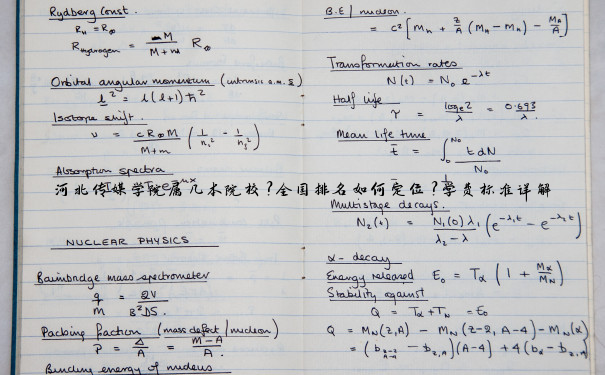 Rydberg Const.
R_H = R_∞
R_Hydrogen = M / M+m R_∞
Orbital angular momentum (intrinsic a.m. s)
l² = l(l+1)ħ²
Isotope shift.
ν = cR_∞M / M+m (1/n₁² - 1/n₂²)
Absorption spectra
河北传媒学院属几本院校?全国排名如何定位?学费标准详解
NUCLEAR PHYSICS
Bainbridge mass spectrometer
q/m = 2V / B²DS.
Packing fraction (mass defect / nucleon)
P = Δ/A = M-A / A.
Binding energy of nucleus
B.E / nucleon.
= c² [ M_n + Z/A (M_H - M_n) - M_A/A ]
Transformation rates
N(t) = N₀ e^-λt
Half life
τ = log_e 2 / λ = 0.693 / λ
Mean life time
t̄ = ∫₀^N₀ t dN / N₀
Multistage decays.
N₂(t) = N₁(0) λ₁ / λ₂ - λ (e^-λ₁t - e^-λ₂t)
α - decay
Energy released E₀ = T_α (1 + M_α/M_N)
Stability against
Q = T_α + T_N = E₀
Q = M_N(Z,A) - M_N(Z-2, A-4) - M_N(α)
= (b_Z-2,A-4 - b_Z,A)(A-4) + 4(b_α - b_Z,A)